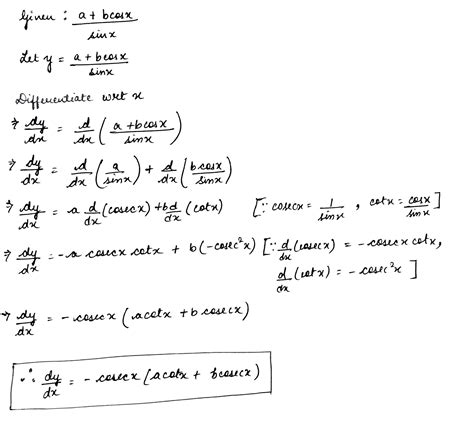 Given : (a + bcosx)/sinx
Let y = (a + bcosx)/sinx
Differentiate wrt x
⇒ dy/dx = d/dx ((a + bcosx)/sinx)
⇒ dy/dx = d/dx (a/sinx) + d/dx (bcosx/sinx)
⇒ dy/dx = a d/dx (cosecx) + b d/dx (cotx) [∵ cosecx = 1/sinx , cotx = cosx/sinx]
⇒ dy/dx = -a cosecx cotx + b(-cosec²x) [∵ d/dx (cosecx) = -cosecx cotx,
d/dx (cotx) = -cosec²x ]
⇒ dy/dx = -cosecx (acotx + b cosecx)
∴ dy/dx = -cosecx (acotx + bcosecx)